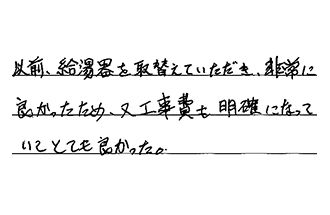 以前、給湯器を取替えていただき、非常に
良かったため、又工事費も明確になって
いてとても良かった。